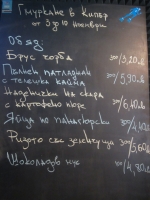 Гмуркане в Кипър
от 3 до 10 ноември
Обяд:
Брус чорба 300/3,20лв
Пълнен патладжан
с телешка кайма 300/5,90лв
Надени́чки на скара
с картофено пюре 300/6,40лв
Яйца по панагюрски 300/4,40лв
Ризото със зеленчуци 300/5,60лв
Шоколадов мус 100/4,80лв